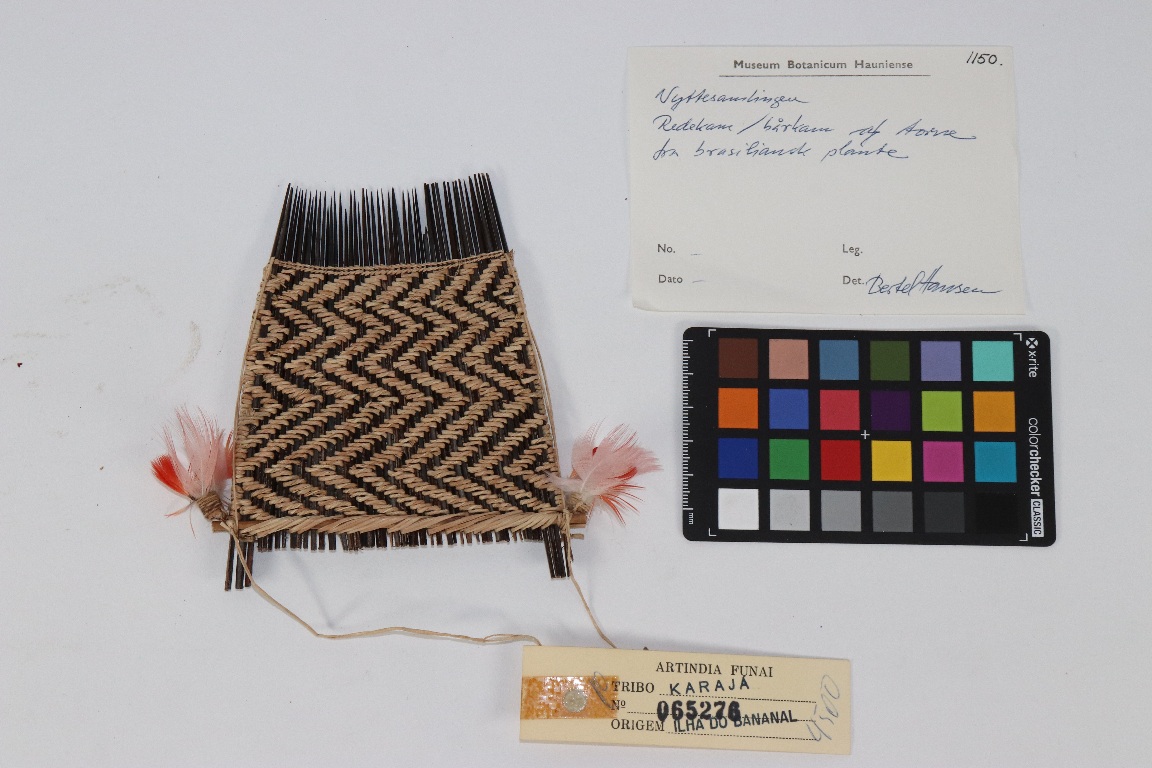 Museum Botanicum Hauniense
1150.
Nyttesamlingen
Redekam / hårkam af torne
fra brasiliansk plante
No. –
Leg.
Dato –
Det. Bertel Hansen
x·rite
colorchecker CLASSIC
mm
ARTINDIA FUNAI
TRIBO KARAJÁ
Nº 065276
ORIGEM ILHA DO BANANAL
4500